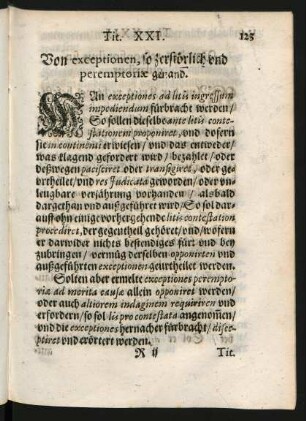 Tit. XXI. 125
Von exceptionen, so zerstörlich vnd
peremptoriæ genand.
WAn exceptiones ad litis ingressum
impediendum fürbracht werden/
So sollen dieselbe ante litis conte-
stationem proponiret, vnd dofern
sie in continenti erwiesen/ vnd das entweder/
was klagend gefordert wird/ bezahlet/ oder
deßwegen pacisciret oder transigiret, oder ge-
vrtheilet/ vnd res Judicata geworden/ oder vn
leugbare verjährung vorhanden/ alsbald
dargethan vnd außgeführet wird/ So sol dar-
auff ohn einige vorhergehende litis contestation
procediret, der gegentheil gehöret/ vnd/ wofern
er darwider nichts bestendiges fürt vnd bey
zubringen/ vermüg derselben opponirten vnd
außgeführten exceptionen geurtheilet werden.
Solten aber ermelte exceptiones perempto-
riæ ad merita causæ allein opponiret werden/
oder auch altiorem indaginem requiriren vnd
erfordern/ so sol lis pro contestata angenom̃en/
vnd die exceptiones hernacher fürbracht/ disce-
ptiret vnd erörtert werden.
R ij Tit.